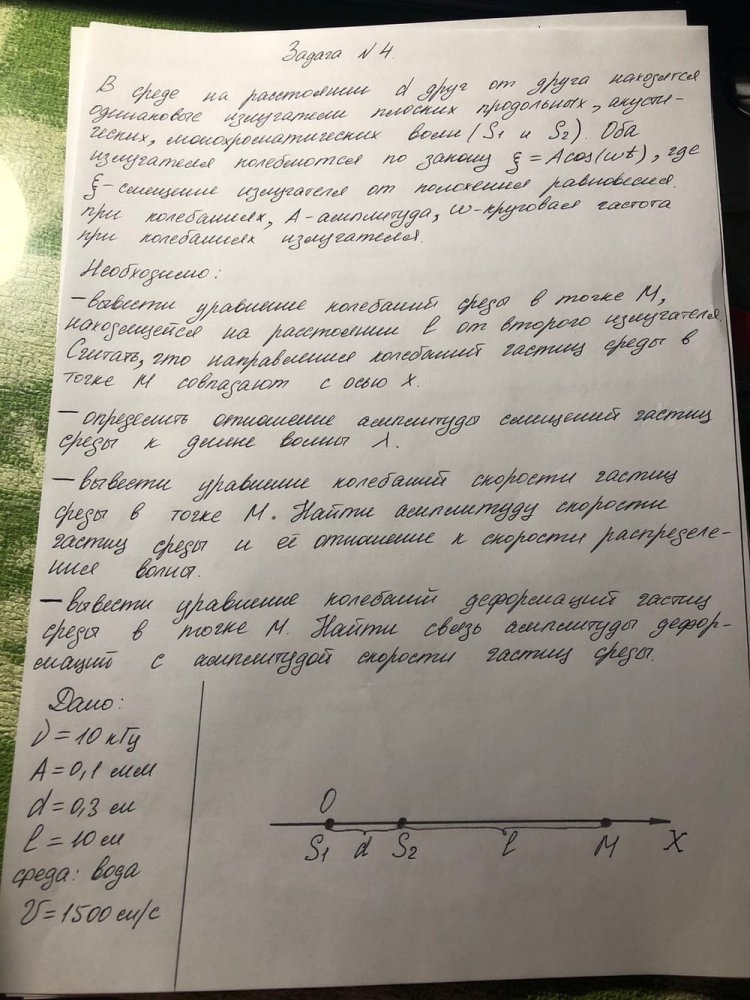 Задача N 4.
В среде на расстоянии d друг от друга находятся
одинаковые излучатели плоских продольных, акусти-
ческих, монохроматических волн (S1 и S2). Оба
излучателя колеблются по закону ξ = Acos(ωt), где
ξ - смещение излучателя от положения равновесия
при колебаниях, A - амплитуда, ω - круговая частота
при колебаниях излучателя.
Необходимо:
- вывести уравнение колебаний среды в точке M,
находящейся на расстоянии l от второго излучателя.
Считать, что направления колебаний частиц среды в
точке M совпадают с осью X.
- определить отношение амплитуды смещений частиц
среды к длине волны λ.
- вывести уравнение колебаний скорости частиц
среды в точке M. Найти амплитуду скорости
частиц среды и её отношение к скорости распределе-
ния волны.
- вывести уравнение колебаний деформаций частиц
среды в точке M. Найти связь амплитуды дефор-
маций с амплитудой скорости частиц среды.
Дано:
ν = 10 кГц
A = 0,1 мм
d = 0,3 м
l = 10 м
среда: вода
V = 1500 м/с
O
S1 d S2 l M X